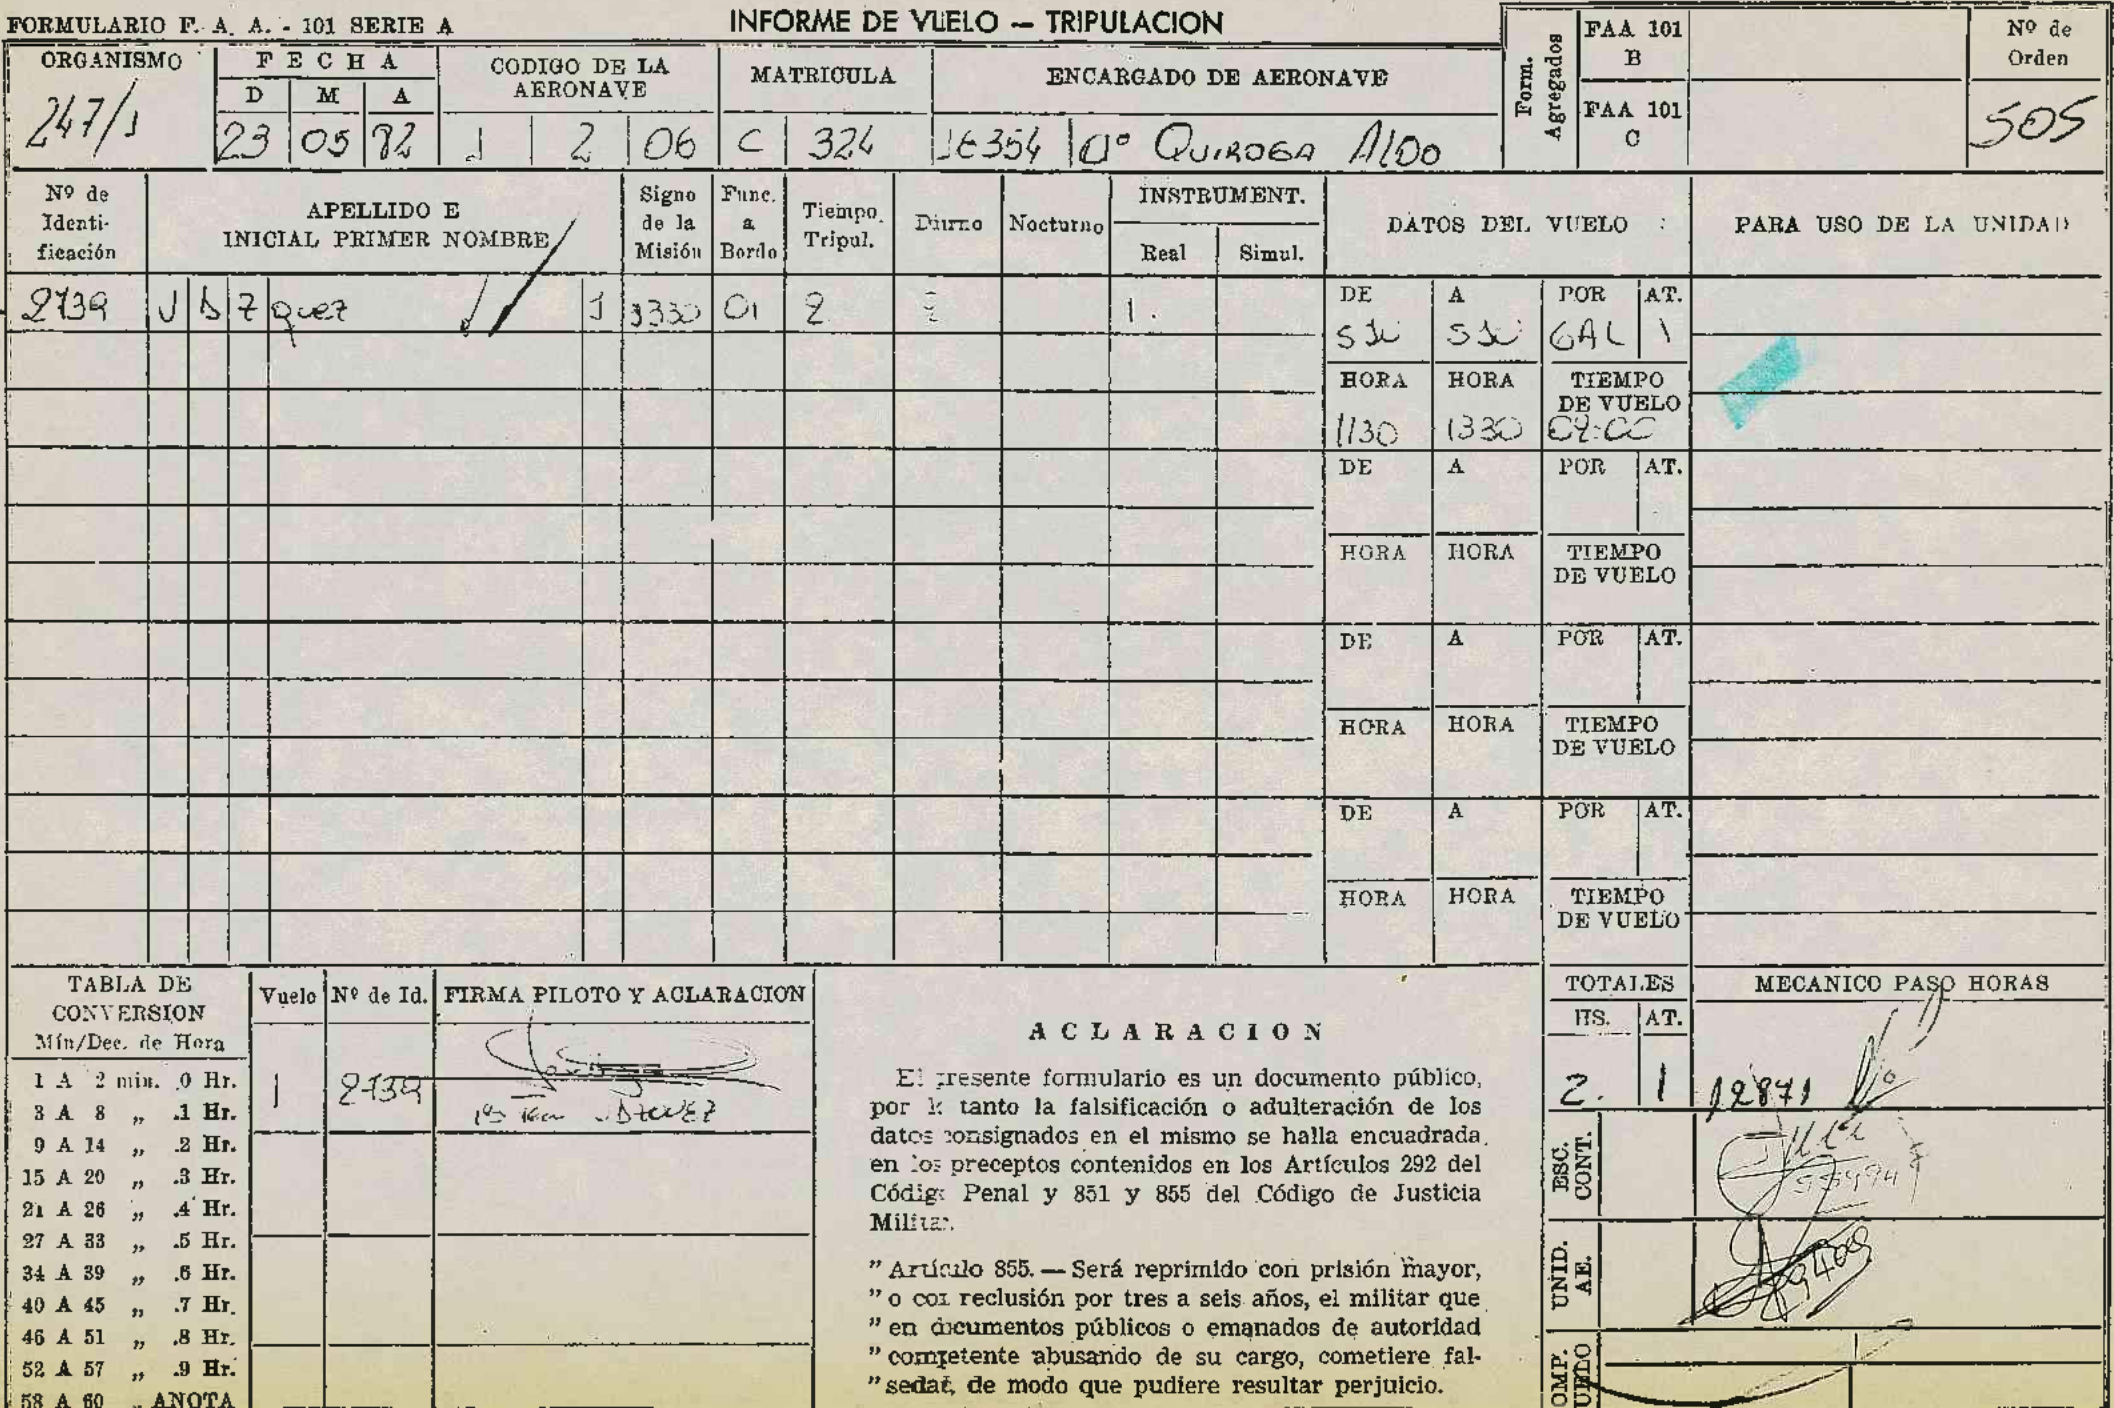 FORMULARIO F. A. A. - 101 SERIE A
INFORME DE VUELO — TRIPULACION
Form. Agregados
FAA 101 B
FAA 101 C
Nº de Orden
505
ORGANISMO
247/1
FECHA
D M A
23 05 82
CODIGO DE LA AERONAVE
1 2 06
MATRICULA
C 324
ENCARGADO DE AERONAVE
QUIROGA AlDo
Nº de Identificación
APELLIDO E INICIAL PRIMER NOMBRE
Signo de la Misión
Func. a Bordo
Tiempo Tripul.
Diurno
Nocturno
INSTRUMENT.
Real
Simul.
DATOS DEL VUELO
PARA USO DE LA UNIDAD
2739 VAZquez J 3330 01 2 1.
DE A POR AT.
SJU SJU GAL 1
HORA HORA TIEMPO DE VUELO
1130 1330 02:00
DE A POR AT.
HORA HORA TIEMPO DE VUELO
DE A POR AT.
HORA HORA TIEMPO DE VUELO
DE A POR AT.
HORA HORA TIEMPO DE VUELO
TABLA DE CONVERSION
Mín/Dec. de Hora
1 A 2 min. .0 Hr.
3 A 8 „ .1 Hr.
9 A 14 „ .2 Hr.
15 A 20 „ .3 Hr.
21 A 26 „ .4 Hr.
27 A 33 „ .5 Hr.
34 A 39 „ .6 Hr.
40 A 45 „ .7 Hr.
46 A 51 „ .8 Hr.
52 A 57 „ .9 Hr.
58 A 60 „ ANOTA
Vuelo
Nº de Id.
FIRMA PILOTO Y ACLARACION
1 2739
VAZQUEZ
ACLARACION
El presente formulario es un documento público,
por lo tanto la falsificación o adulteración de los
datos consignados en el mismo se halla encuadrada
en los preceptos contenidos en los Artículos 292 del
Código Penal y 851 y 855 del Código de Justicia
Militar.
" Artículo 855. — Será reprimido con prisión mayor,
" o con reclusión por tres a seis años, el militar que
" en documentos públicos o emanados de autoridad
" competente abusando de su cargo, cometiere fal-
" sedad, de modo que pudiere resultar perjuicio.
TOTALES
HS. AT.
2. 1
MECANICO PASO HORAS
12871
ESC. CONT.
UNID. AE.